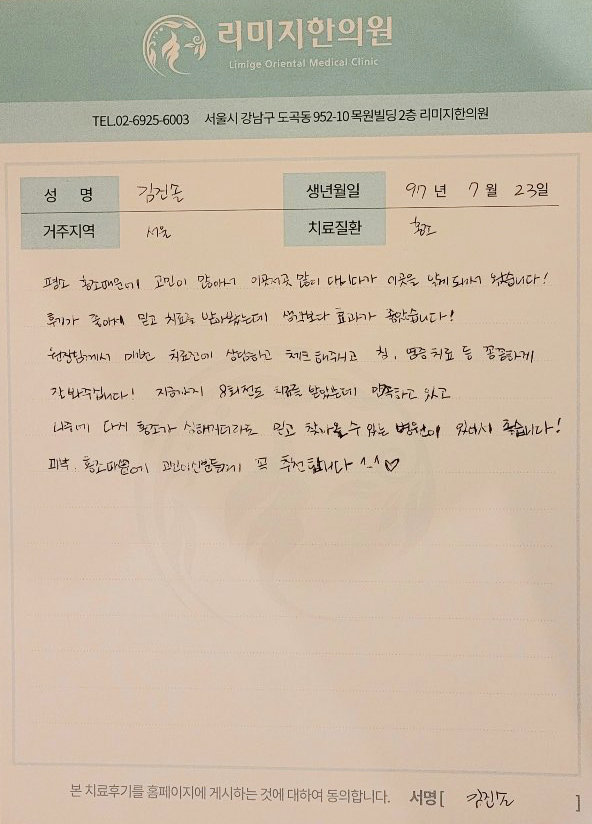 리미지한의원
Limige Oriental Medical Clinic
TEL.02-6925-6003 서울시 강남구 도곡동 952-10 목원빌딩 2층 리미지한의원
성 명 김진솔 생년월일 97년 7월 23일
거주지역 서울 치료질환 홍조
평소 홍조때문에 고민이 많아서 이곳저곳 많이 다니다가 이곳을 알게 되어서 왔습니다!
후기가 좋아서 믿고 치료를 받아봤는데 생각보다 효과가 좋았습니다!
원장님께서 매번 치료전에 상담하고 체크해주시고 침, 염증치료 등 꼼꼼하게
잘 봐주십니다! 지금까지 8회정도 치료를 받았는데 만족하고 있고
나중에 다시 홍조가 심해지더라도 믿고 찾아올 수 있는 병원이 있어서 좋습니다!
피부, 홍조때문에 고민이신분들께 꼭 추천합니다 ^-^♡
본 치료후기를 홈페이지에 게시하는 것에 대하여 동의합니다. 서명 [ 김진솔 ]